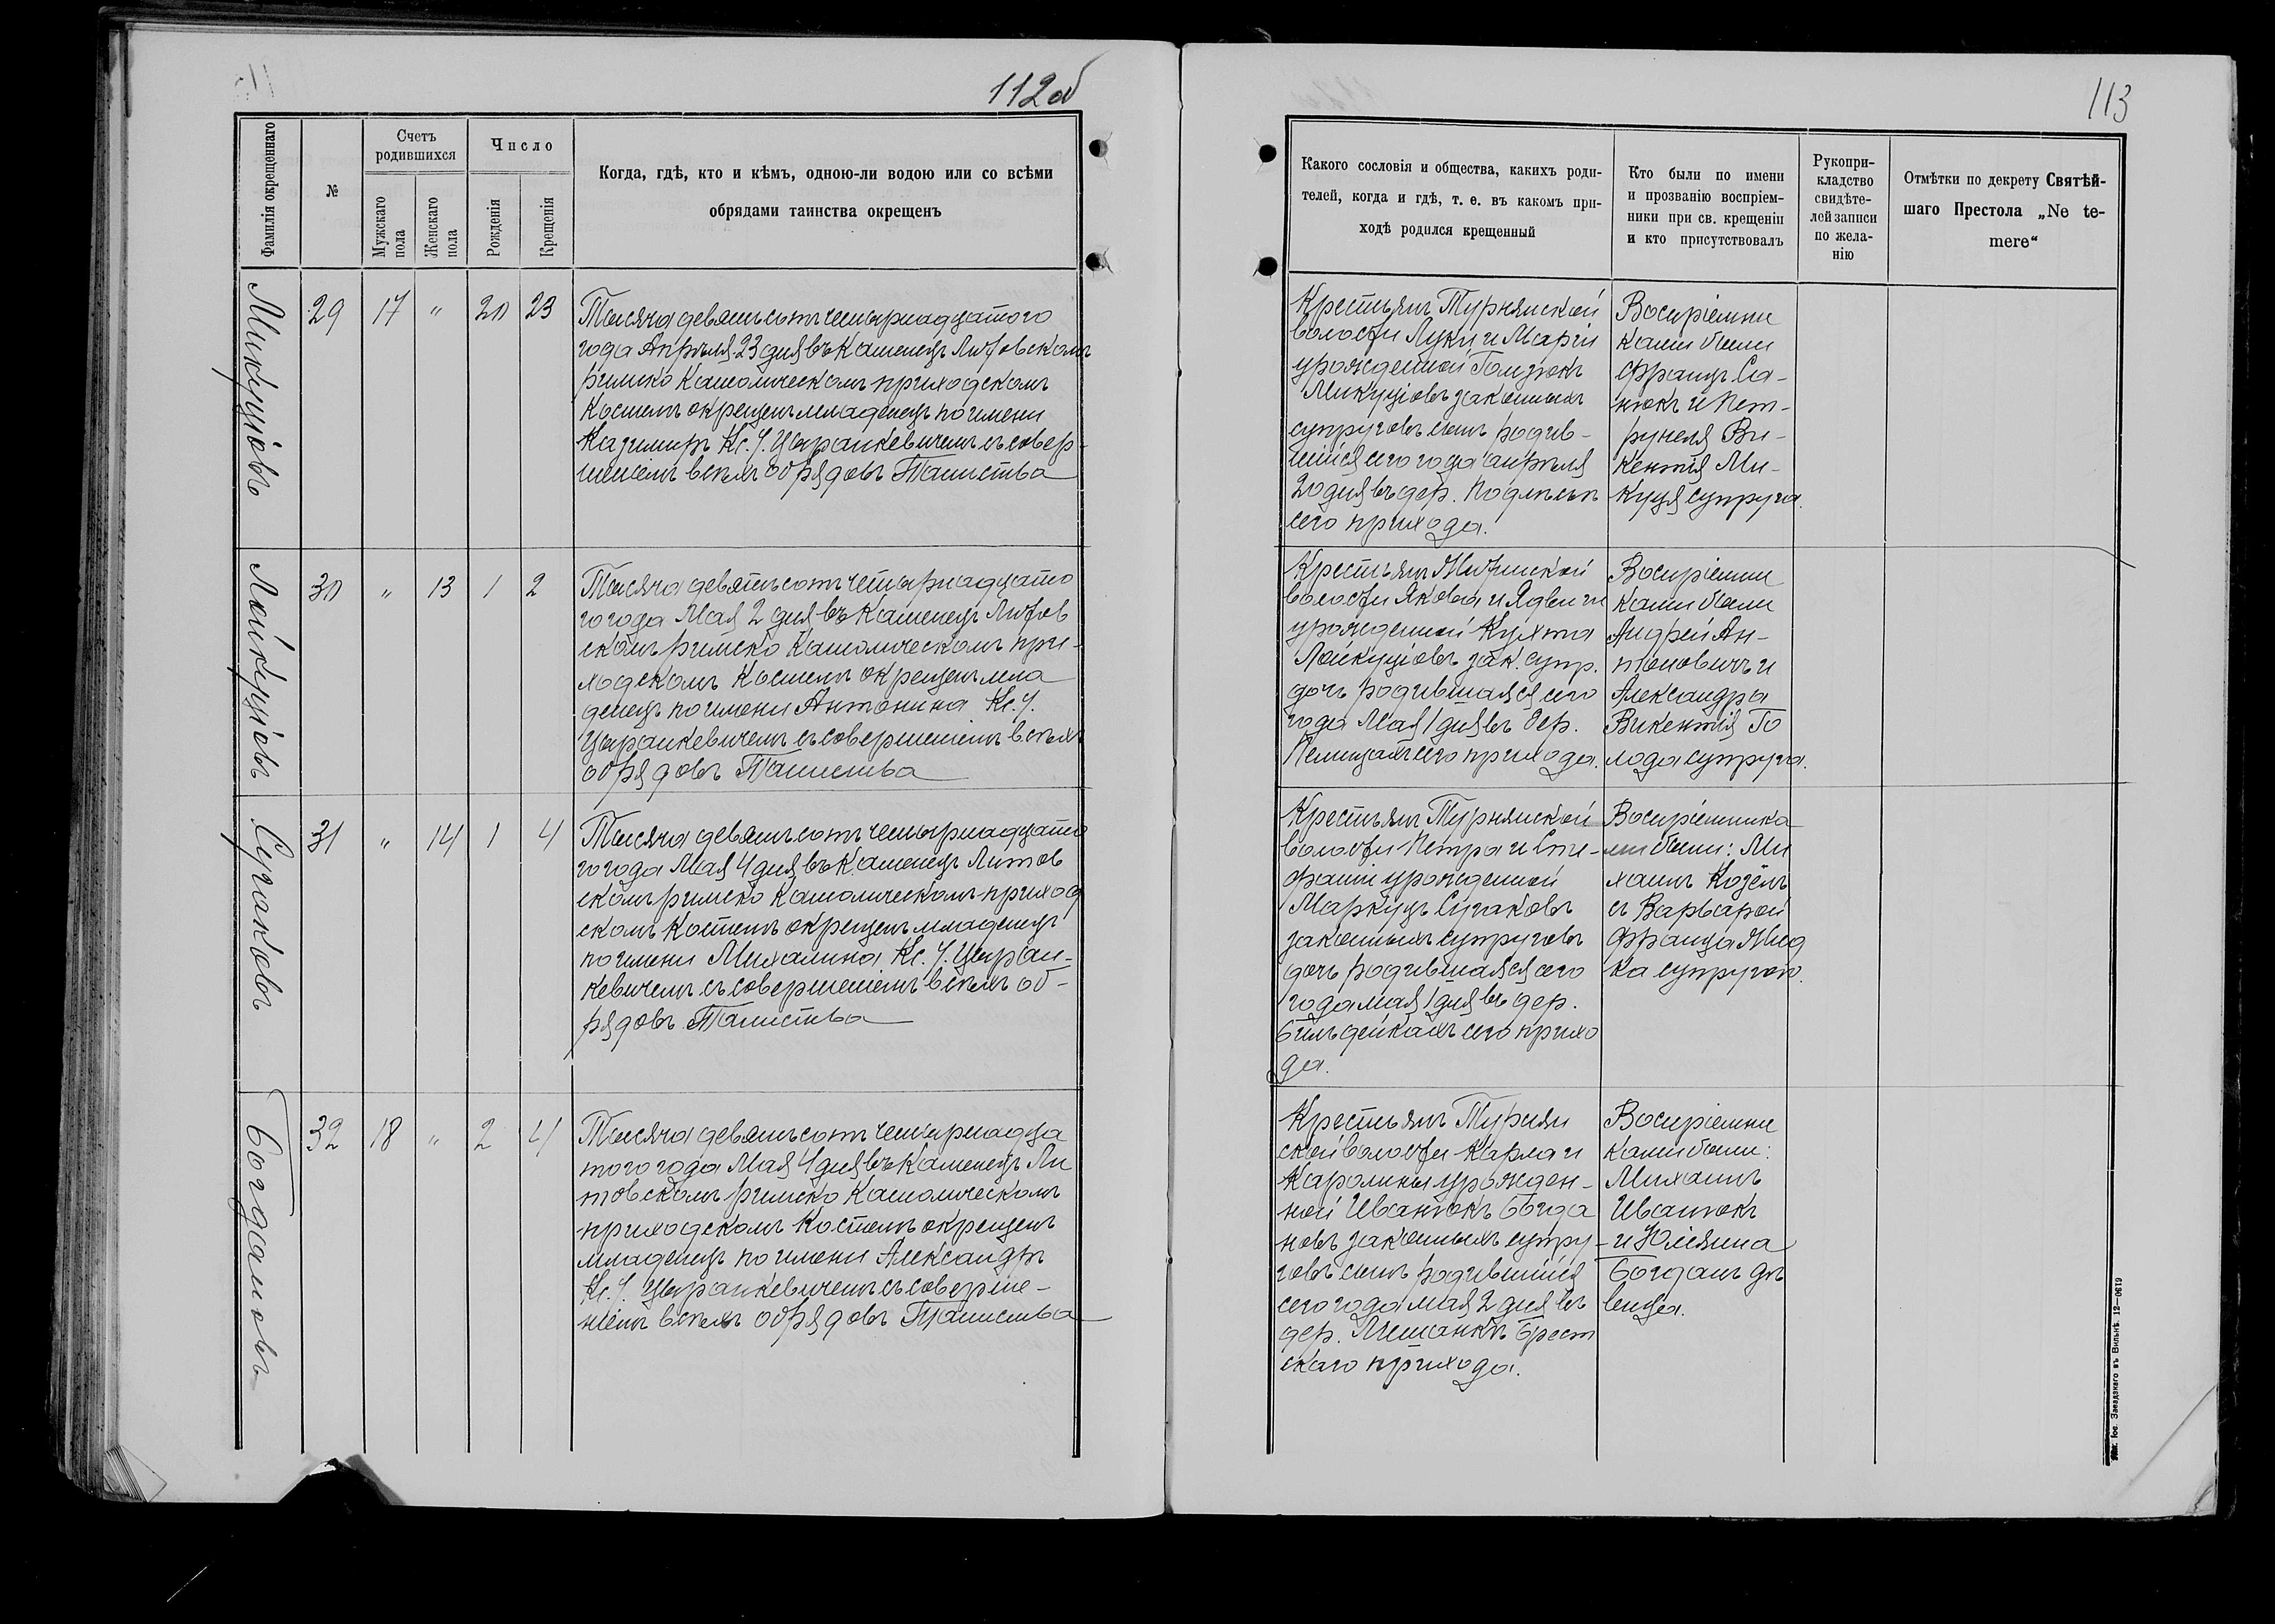 112об
Фамилія окрещеннаго
№
Счетъ
родившихся
Мужскаго
пола
Женскаго
пола
Число
Рожденія
Крещенія
Когда, гдѣ, кто и кѣмъ, одною-ли водою или со всѣми
обрядами таинства окрещенъ
Микуціовъ
29
17
"
20
23
Тысяча девятьсотъ четырнадцатого
года Апрѣля 23 дня въ Каменецъ Литовскомъ
римско Католическомъ приходскомъ
Костелѣ окрещенъ младенецъ по имени
Казимиръ Кс. У. Цыранкевичемъ съ совер-
шеніемъ всѣхъ обрядовъ Таинства
Лойкуціовъ
30
"
13
1
2
Тысяча девятьсотъ четырнадцато
го года Мая 2 дня въ Каменецъ Литов
скомъ римско Католическомъ при-
ходскомъ Костелѣ окрещенъ мла
денецъ по имени Антонина Кс. У.
Цыранкевичемъ съ совершеніемъ всѣхъ
обрядовъ Таинства
Сугаковъ
31
"
14
1
4
Тысяча девятьсотъ четырнадцато
го года Мая 4 дня въ Каменецъ Литов
скомъ римско Католическомъ приход
скомъ Костелѣ окрещенъ младенецъ
по имени Михалина Кс. У. Цыран-
кевичемъ съ совершеніемъ всѣхъ об-
рядовъ Таинства
Богдановъ
32
18
"
2
4
Тысяча девятьсотъ четырнадца
того года Мая 4 дня въ Каменецъ Ли
товскомъ римско Католическомъ
приходскомъ Костелѣ окрещенъ
младенецъ по имени Александръ
Кс. У. Цыранкевичемъ съ соверше-
ніемъ всѣхъ обрядовъ Таинства
113
Какого сословія и общества, какихъ роди-
телей, когда и гдѣ, т. е. въ какомъ при-
ходѣ родился крещенный
Кто были по имени
и прозванію воспріем-
ники при св. крещеніи
и кто присутствовалъ
Рукопри-
кладство
свидѣте-
лей записи
по жела-
нію
Отмѣтки по декрету Святѣй-
шаго Престола „Ne te-
mere“
Крестьянъ Турнянской
волости Луки и Маріи
урожденной Гомзюкъ
Микуціовъ законныхъ
супруговъ сынъ родив-
шійся сего года апрѣля
20 дня въ дер. Подлѣсьѣ
сего прихода.
Воспріемни
ками были
Францъ Са-
нюкъ и Пет-
рунеля Ви-
кентія Ми-
куця супруга.
Крестьянъ
волости Якова и Ядвиги
урожденной Кухта
Лойкуціовъ зак. супр.
дочь родившаяся сего
года Мая 1 дня въ дер.
Пелищахъ сего прихода.
Воспріемни
ками были
Андрей Ан-
тоновичъ и
Александра
Викентія Го
лода супруга.
Крестьянъ Турнянской
волости Петра и Сте-
фаніи урожденной
Маркуцъ Сугаковъ
законныхъ супруговъ
дочь родившаяся сего
года мая 1 дня въ дер.
Бильдейкахъ сего прихо
да.
Воспріемника
ми были: Ми
хаилъ Козелъ
съ Варварой
Франца
ка супругой.
Крестьянъ Турнян
ской волости Карла и
Каролины урожден-
ной Иванюкъ Богда
новъ законныхъ супру-
говъ сынъ родившійся
сего года мая 2 дня въ
дер. Лешанкѣ Брест
скаго прихода.
Воспріемни
ками были:
Михаилъ
Иванюкъ
и Юліянна
Богданъ дѣ
вица.
Іос. Завадзкаго въ Вильнѣ. 12—0619